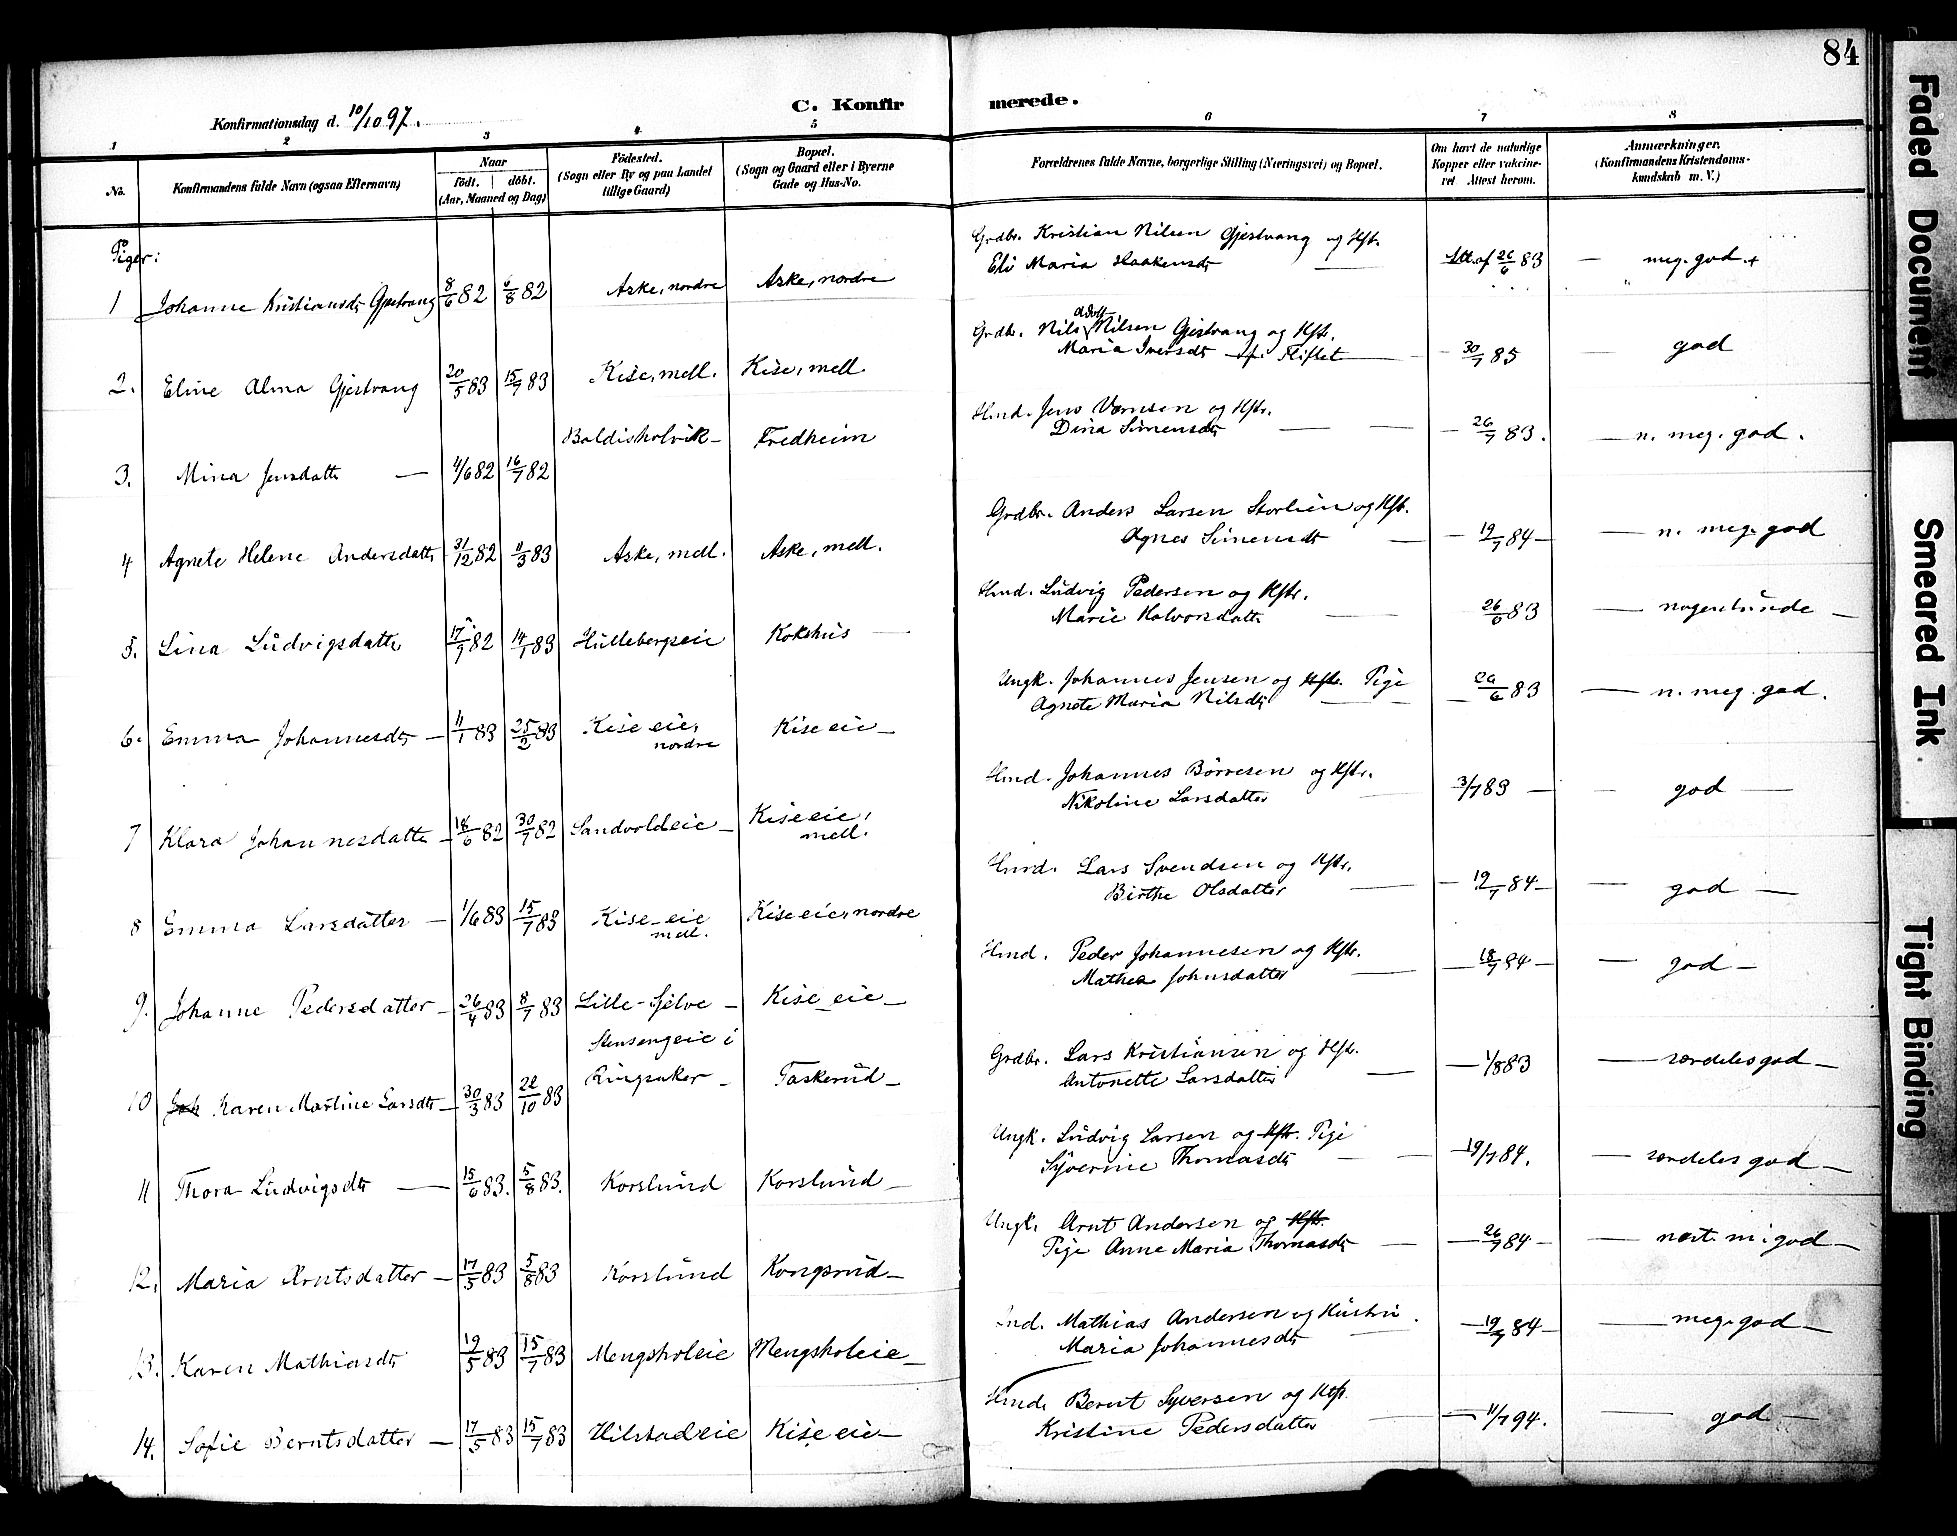 84
C. Konfirmerede.
Konfirmationsdag d. 10/10 97.
1 2 3 4 5 6 7 8
No. Konfirmandens fulde Navn (ogsaa Efternavn) Naar födt. döbt. (Aar, Maaned og Dag) Födested. (Sogn eller By og paa Landet tillige Gaard) Bopæl. (Sogn og Gaard eller i Byerne Gade og Hus-No. Forældrenes fulde Navne, borgerlige Stilling (Næringsvei) og Bopæl. Om havt de naturlige Kopper eller vakcineret. Attest herom. Anmærkninger. (Konfirmandens Kristendomskundskab m. V.)
Piger:
1 Johanne Kristiansdt Gjestvang 8/6 82 6/8 82 Aske, nordre Aske, nordre Grdbr. Kristian Nilsen Gjestvang og Hst. Eli Maria Haakensdt — Att. af 26/6 83 — meg. god +
2. Eline Alma Gjestvang 20/5 83 15/7 83 Kise, mell. Kise, mell. Grdb. Nils Adolf Nilsen Gjestvang og Hst. Maria Iversdt f. Fliflet — 30/7 85 — god
3. Mina Jensdatt — 4/6 82 16/7 82 Baldisholvik — Fredheim Hmd. Jens Varnsen og Hstr. Dina Simensdt — — 26/7 83. — n. meg. god.
4 Agnete Helene Andersdatt 31/12 82 11/3 83 Aske, mell. Aske, mell. Grdbr. Anders Larsen Storlien og Hst. Agnes Simensdt — 19/7 84 — n. meg. god
5. Lina Ludvigsdatte 17/9 82 14/1 83 Hullebergseie Kokshus — Hmd. Ludvig Pedersen og Hstr. Marie Halvorsdatt — 26/6 83 — nogenlunde —
6. Emma Johannesdt — 11/1 83 25/2 83 Kise eie, nordre Kise eie — Ungk. Johannes Jensen og Hstr. Pige Agnete Maria Nilsdt — 26/6 83 — n. meg. god.
7 Klara Johannesdatte — 18/6 82 30/7 82 Sandvoldeie — Kise eie, mell. Hmd. Johannes Börresen og Hstr. Nikoline Larsdatter — 3/7 83 — god —
8 Emma Larsdatter — 1/6 83 15/7 83 Kise eie mell. Kise eie, nordre Hmd. Lars Svendsen og Hstr. Birthe Olsdatter — 19/7 84 — god —
9. Johanne Pedersdatter — 26/4 83 8/7 83 Lille-Sjelve — Kise eie — Hmd. Peder Johannesen og Hstr. Mathea Johnsdatter — 18/7 84 — god —
10 Joh Karen Martine Larsdt — 30/3 83 22/10 83 Stensengeie i Ringsaker — Taskerud — Grdbr. Lars Kristiansen og Hst. Antonette Larsdatter — 1/8 83 — særdeles god —
11 Thora Ludvigsdt — 15/6 83. 5/8 83. Korslund Korslund — Ungk. Ludvig Larsen og Hstr. Pige Syverine Thomasdt — 19/7 84. — særdeles god —
12. Maria Arntsdatter — 17/5 83 5/8 83 Korslund Kongsrud — Ungk. Arnt Andersen og Hstr. Pige Anne Maria Thomasdt — 26/7 84 — næst. m. god —
13. Karen Mathiasdt 19/5 83 15/7 83 Mengsholeie Mengsholeie — Ind. Mathias Andersen og Hustru Maria Johannesdt — 19/7 84 — meg. god —
14. Sofie Berntsdatter — 17/5 83 15/7 83 Hilstadeie Kise eie — Hmd. Bernt Syversen og Hst. Kristine Pedersdatter — 11/7 94. — god —
Faded Document
Smeared Ink
Tight Binding